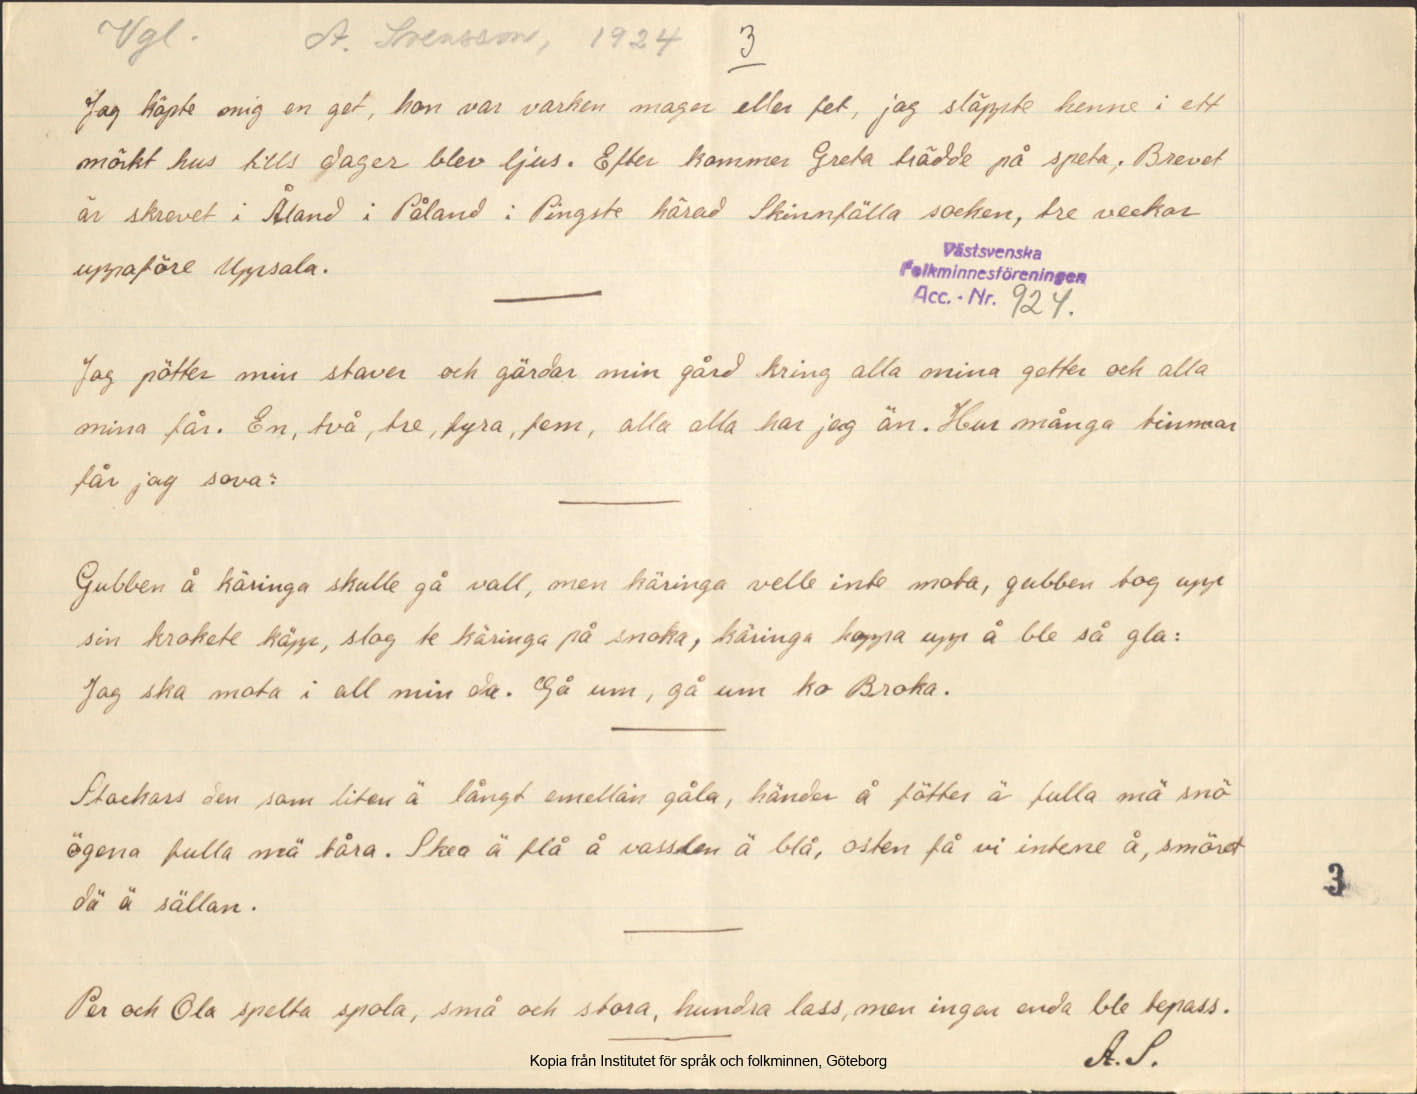 Vgl. A. Svensson, 1924 3
Jag köpte mig en get, hon var varken mager eller fet, jag släppte henne i ett
mörkt hus tills dager blev ljus. Efter kommer Greta trädde på speta. Brevet
är skrevet i Åland i Påland i Pingste härad Skinnfälla socken, tre veckor
uppaföre Uppsala.
Västsvenska
Folkminnesföreningen
Acc. - Nr. 924.
Jag pötter min staver och gärdar min gård kring alla mina getter och alla
mina får. En, två, tre, fyra, fem, alla alla har jag än. Hur många timmar
får jag sova:
Gubben å käringa skulle gå vall, men käringa velle inte mota, gubben tog upp
sin krokete käpp, slog te käringa på snoka, käringa hoppa upp å ble så gla:
Jag ska mota i all min da. Gå um, gå um ko Broka.
Stackars den som liten ä långt emellan gåla, händer å fötter ä fulla mä snö
ögena fulla mä tåra. Skea ä flå å vasslen ä blå, osten få vi intene å, smöret
dä ä sällan.
3
Pär och Ola spelta spola, små och stora, hundra lass, men ingen enda ble tepass.
A. S.
Kopia från Institutet för språk och folkminnen, Göteborg